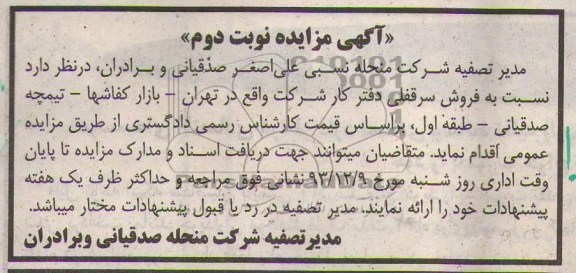 «آگهی مزایده نوبت دوم»
مدیر تصفیه شرکت منحله نسبی علی‌اصغر صدقیانی و برادران، درنظر دارد
نسبت به فروش سرقفلی دفتر کار شرکت واقع در تهران - بازار کفاشها - تیمچه
صدقیانی - طبقه اول، براساس قیمت کارشناس رسمی دادگستری از طریق مزایده
عمومی اقدام نماید. متقاضیان میتوانند جهت دریافت اسناد و مدارک مزایده تا پایان
وقت اداری روز شنبه مورخ ۹۳/۱۲/۹ نشانی فوق مراجعه و حداکثر ظرف یک هفته
پیشنهادات خود را ارائه نمایند. مدیر تصفیه در رد یا قبول پیشنهادات مختار میباشد.
مدیرتصفیه شرکت منحله صدقیانی وبرادران